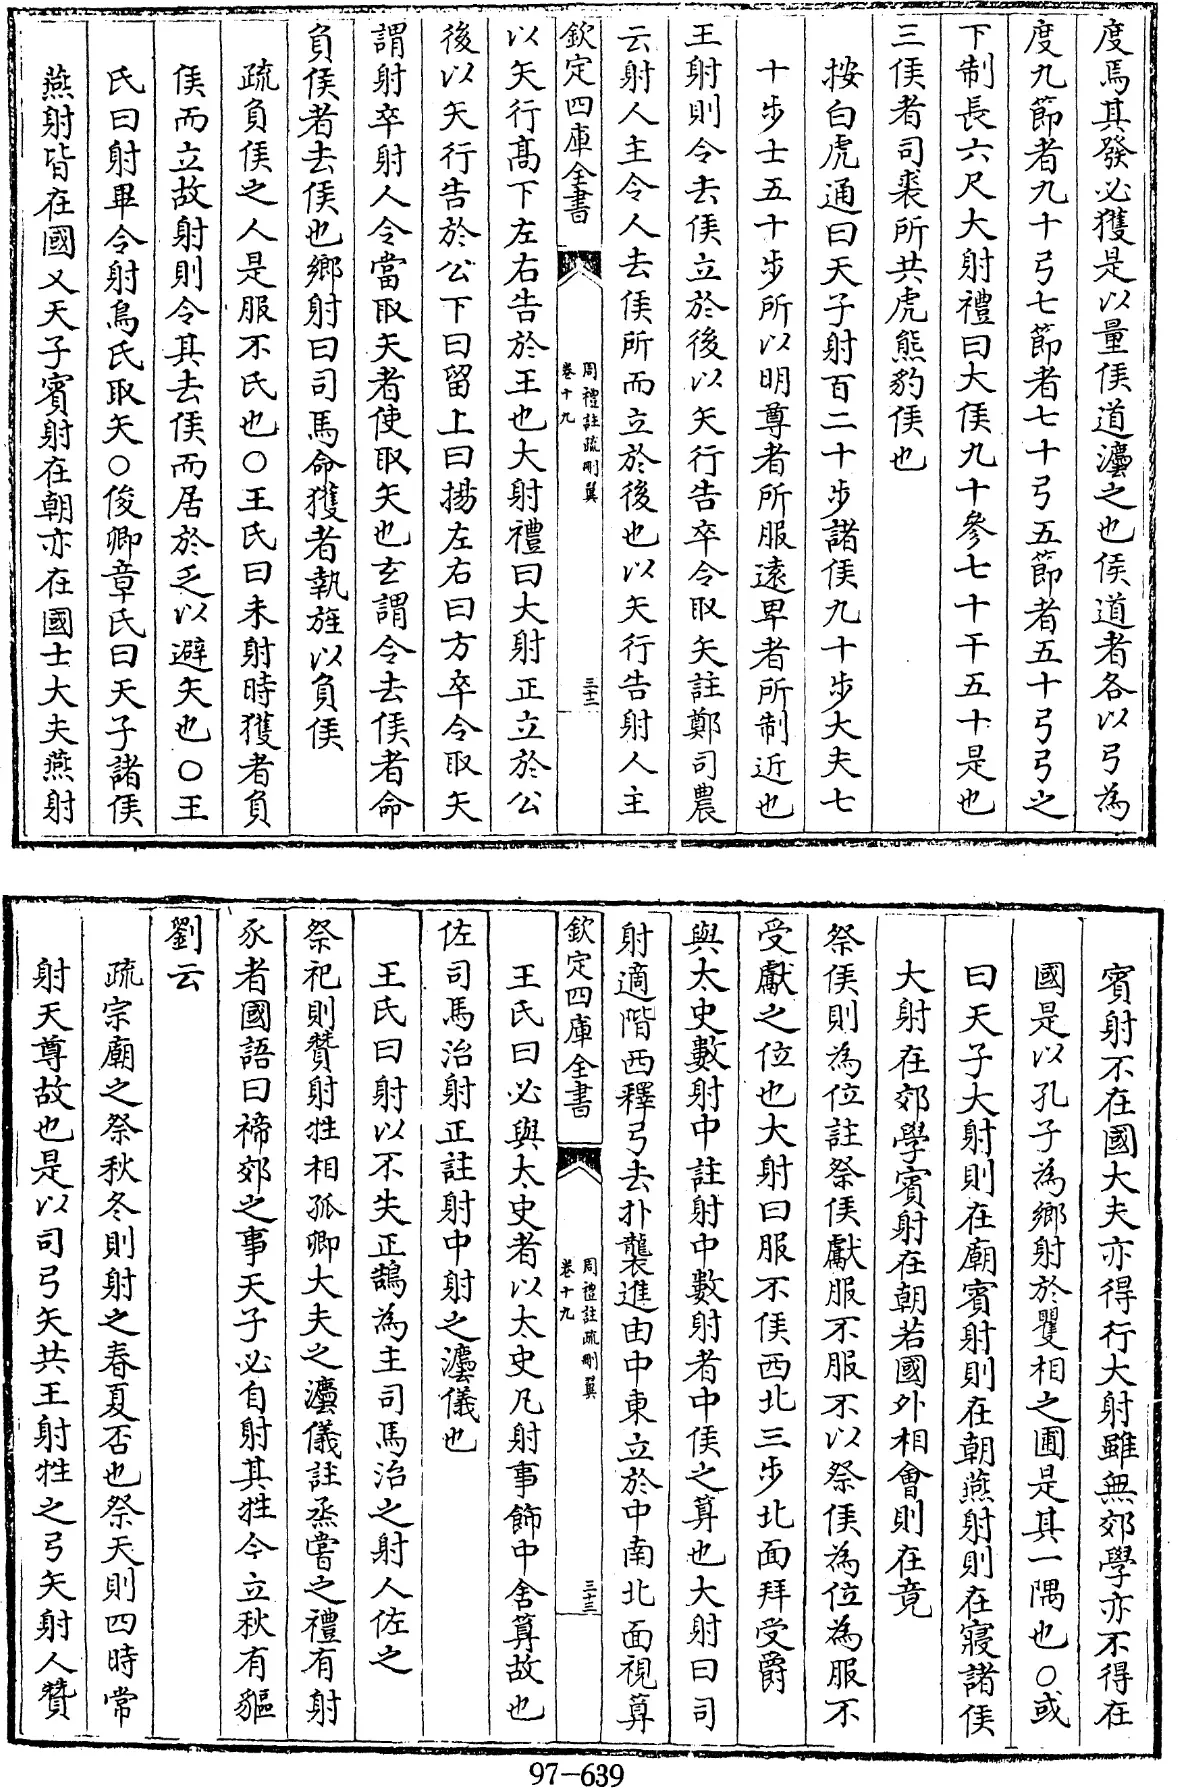 度焉其發必獲是以量侯道灋之也侯道者各以弓為
度九節者九十弓七節者七十弓五節者五十弓弓之
下制長六尺大射禮曰大侯九十參七十干五十是也
三侯者司裘所共虎熊豹侯也
按白虎通曰天子射百二十步諸侯九十步大夫七
十步士五十步所以明尊者所服遠卑者所制近也
王射則令去侯立於後以矢行告卒令取矢註鄭司農
云射人主令人去侯所而立於後也以矢行告射人主
欽定四庫全書
周禮註疏刪翼
卷十九
三十二
以矢行高下左右告於王也大射禮曰大射正立於公
後以矢行告於公下曰留上曰揚左右曰方卒令取矢
謂射卒射人令當取矢者使取矢也玄謂令去侯者命
負侯者去侯也鄉射曰司馬命獲者執旌以負侯
疏負侯之人是服不氏也○王氏曰未射時獲者負
侯而立故射則令其去侯而居於乏以避矢也○王
氏曰射畢令射鳥氏取矢○俊卿章氏曰天子諸侯
燕射皆在國又天子賓射在朝亦在國士大夫燕射
賓射不在國大夫亦得行大射雖無郊學亦不得在
國是以孔子為鄉射於矍相之圃是其一隅也○或
曰天子大射則在廟賓射則在朝燕射則在寢諸侯
大射在郊學賓射在朝若國外相會則在竟
祭侯則為位註祭侯獻服不服不以祭侯為位為服不
受獻之位也大射曰服不侯西北三步北面拜受爵
與太史數射中註射中數射者中侯之算也大射曰司
射適階西釋弓去扑襲進由中東立於中南北面視算
欽定四庫全書
周禮註疏刪翼
卷十九
三十三
王氏曰必與太史者以太史凡射事飾中舍算故也
佐司馬治射正註射中射之灋儀也
王氏曰射以不失正鵠為主司馬治之射人佐之
祭祀則贊射牲相孤卿大夫之灋儀註烝嘗之禮有射
豕者國語曰禘郊之事天子必自射其牲今立秋有貙
劉云
疏宗廟之祭秋冬則射之春夏否也祭天則四時常
射天尊故也是以司弓矢共王射牲之弓矢射人贊
97-639